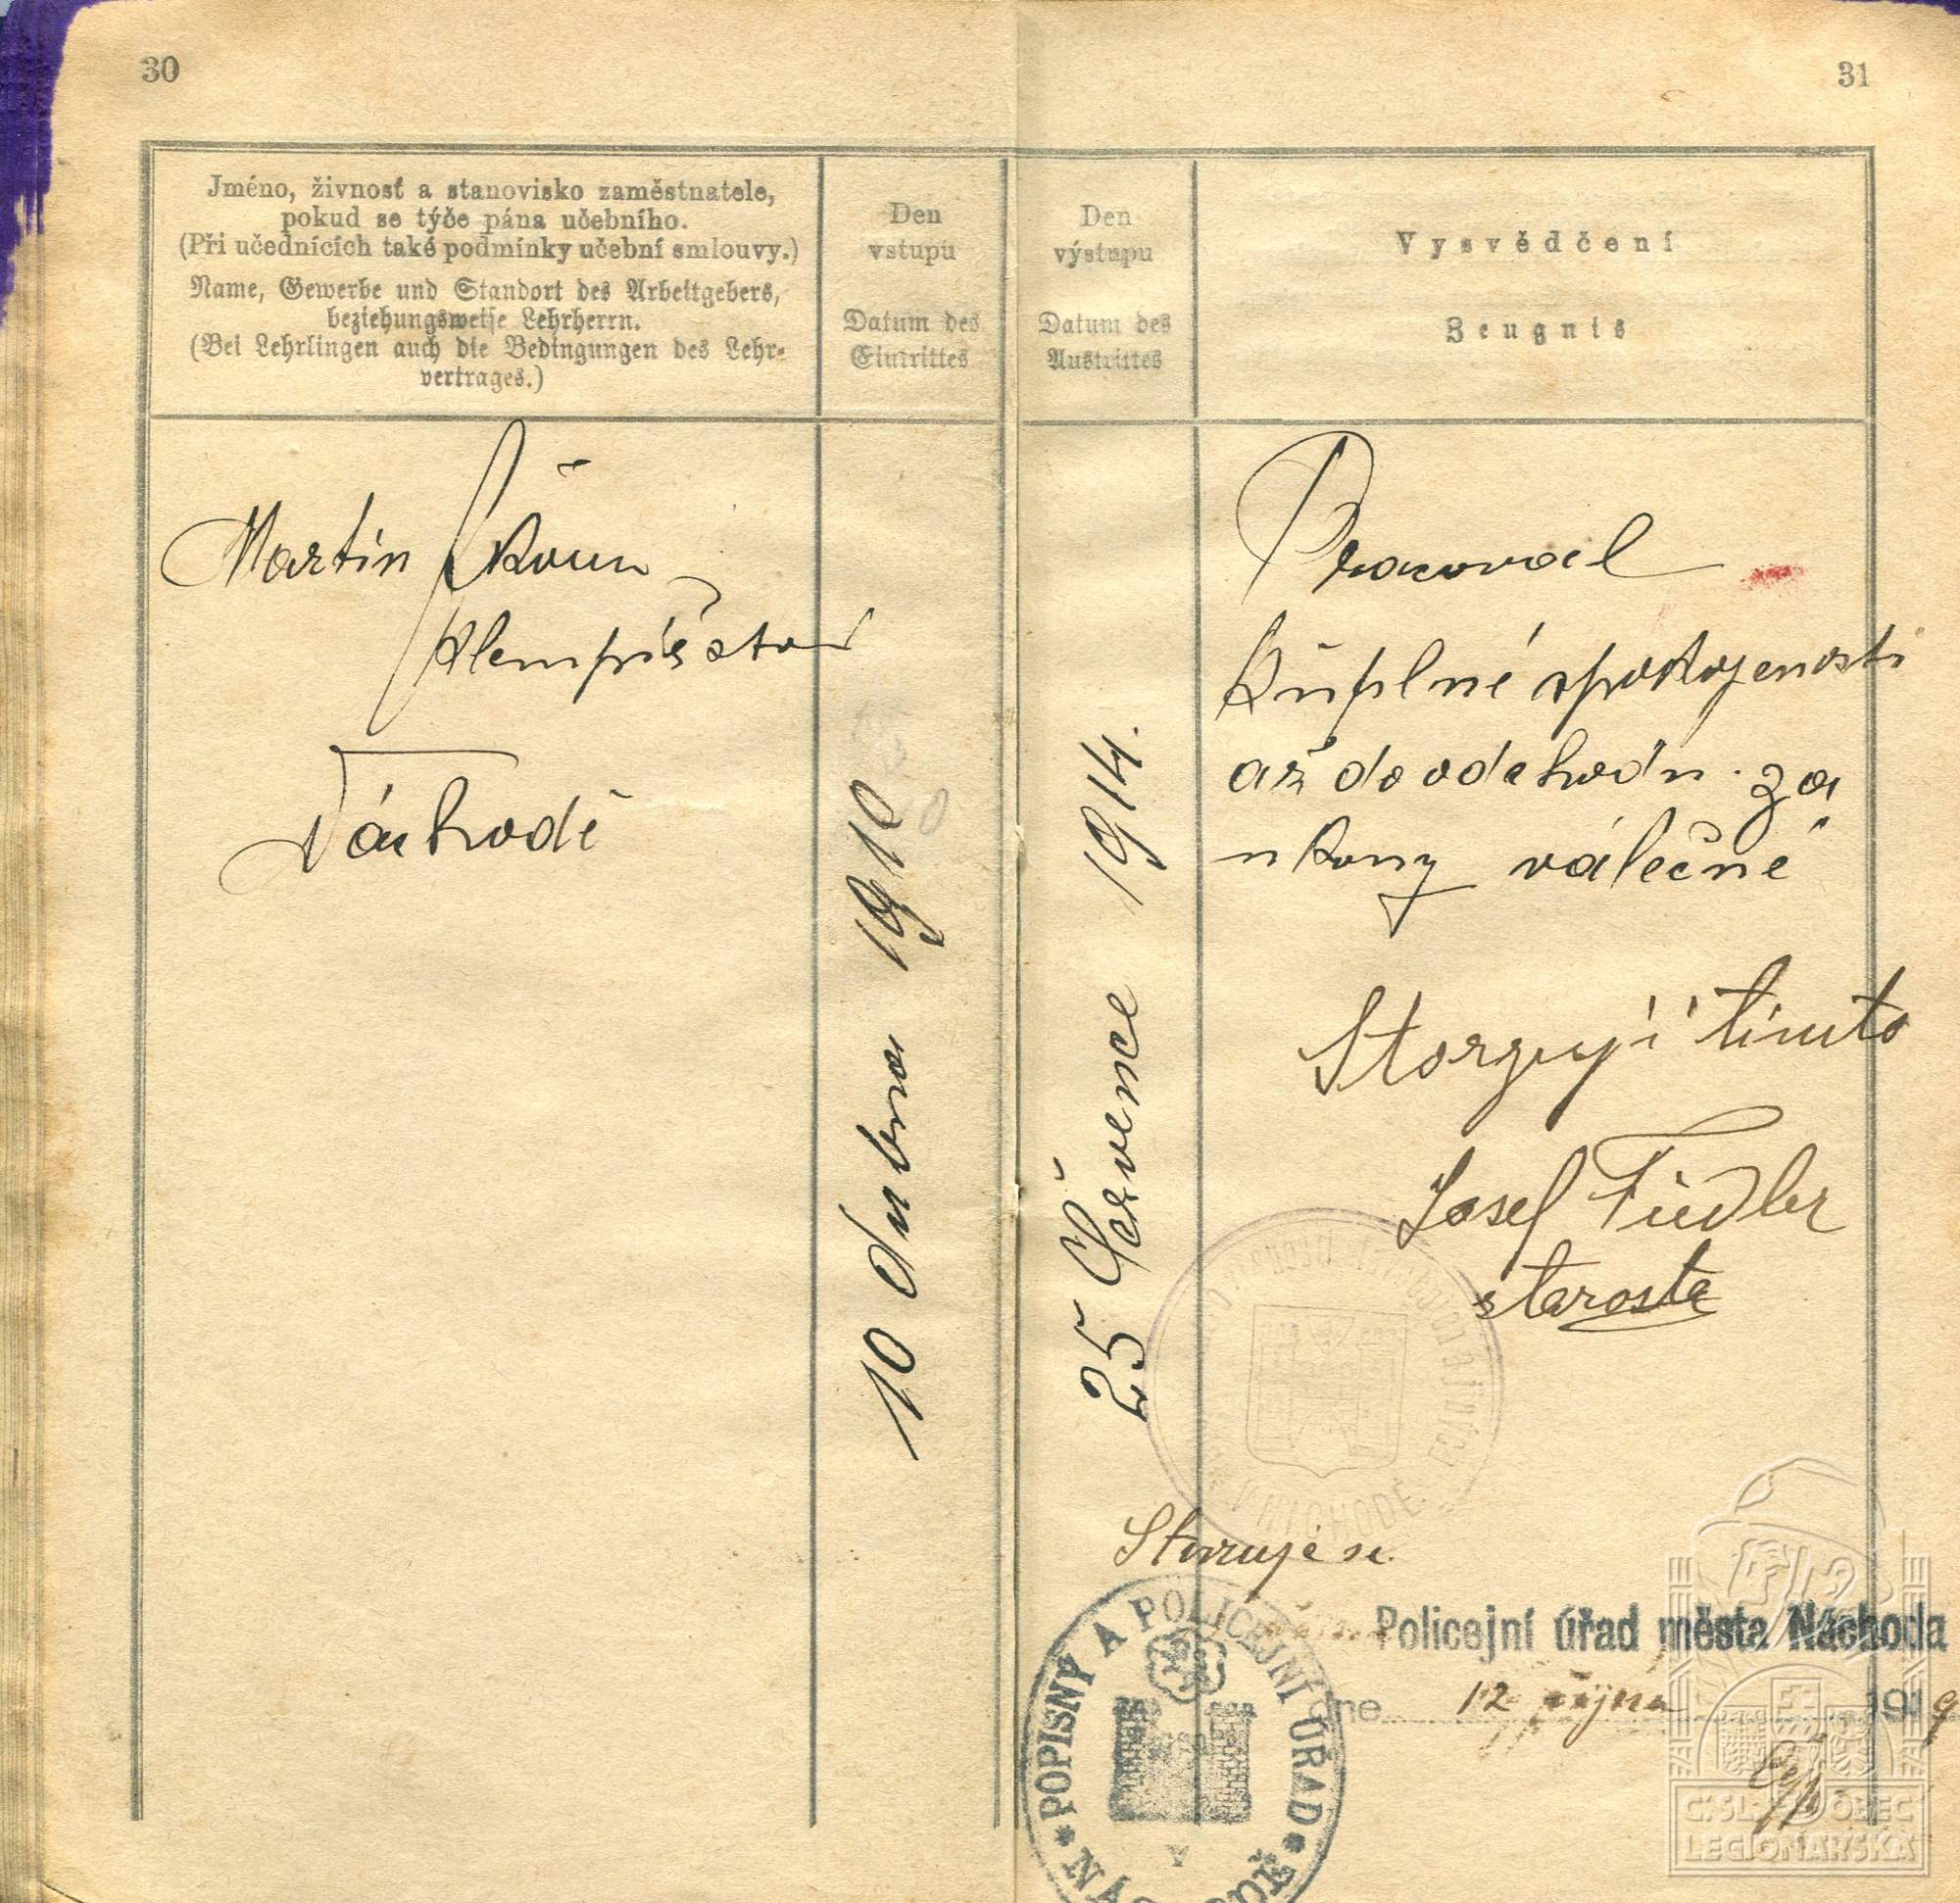 30
31
Jméno, živnosť a stanovisko zaměstnatele,
pokud se týče pána učebního.
(Při učednících také podmínky učební smlouvy.)
Name, Gewerbe und Standort des Arbeitgebers,
beziehungsweise Lehrherrn.
(Bei Lehrlingen auch die Bedingungen des Lehr-
vertrages.)
Den
vstupu
Datum des
Eintrittes
Den
výstupu
Datum des
Austrittes
Vysvědčení
Zeugnis
Martin
Náchodě
10 dubna 1910
25 Července 1914.
Pracoval
k úplné spokojenosti
až do odchodu za
úkony válečné
Stvrzuji tímto
Josef Fiedler
starosta
V NÁCHODĚ
Stvrzuje se.
Policejní úřad města Náchoda
dne 12 října 1919
POPISNÝ A POLICEJNÍ ÚŘAD
NÁCHODĚ
Č.SL. OBEC
LEGIONÁŘSKÁ